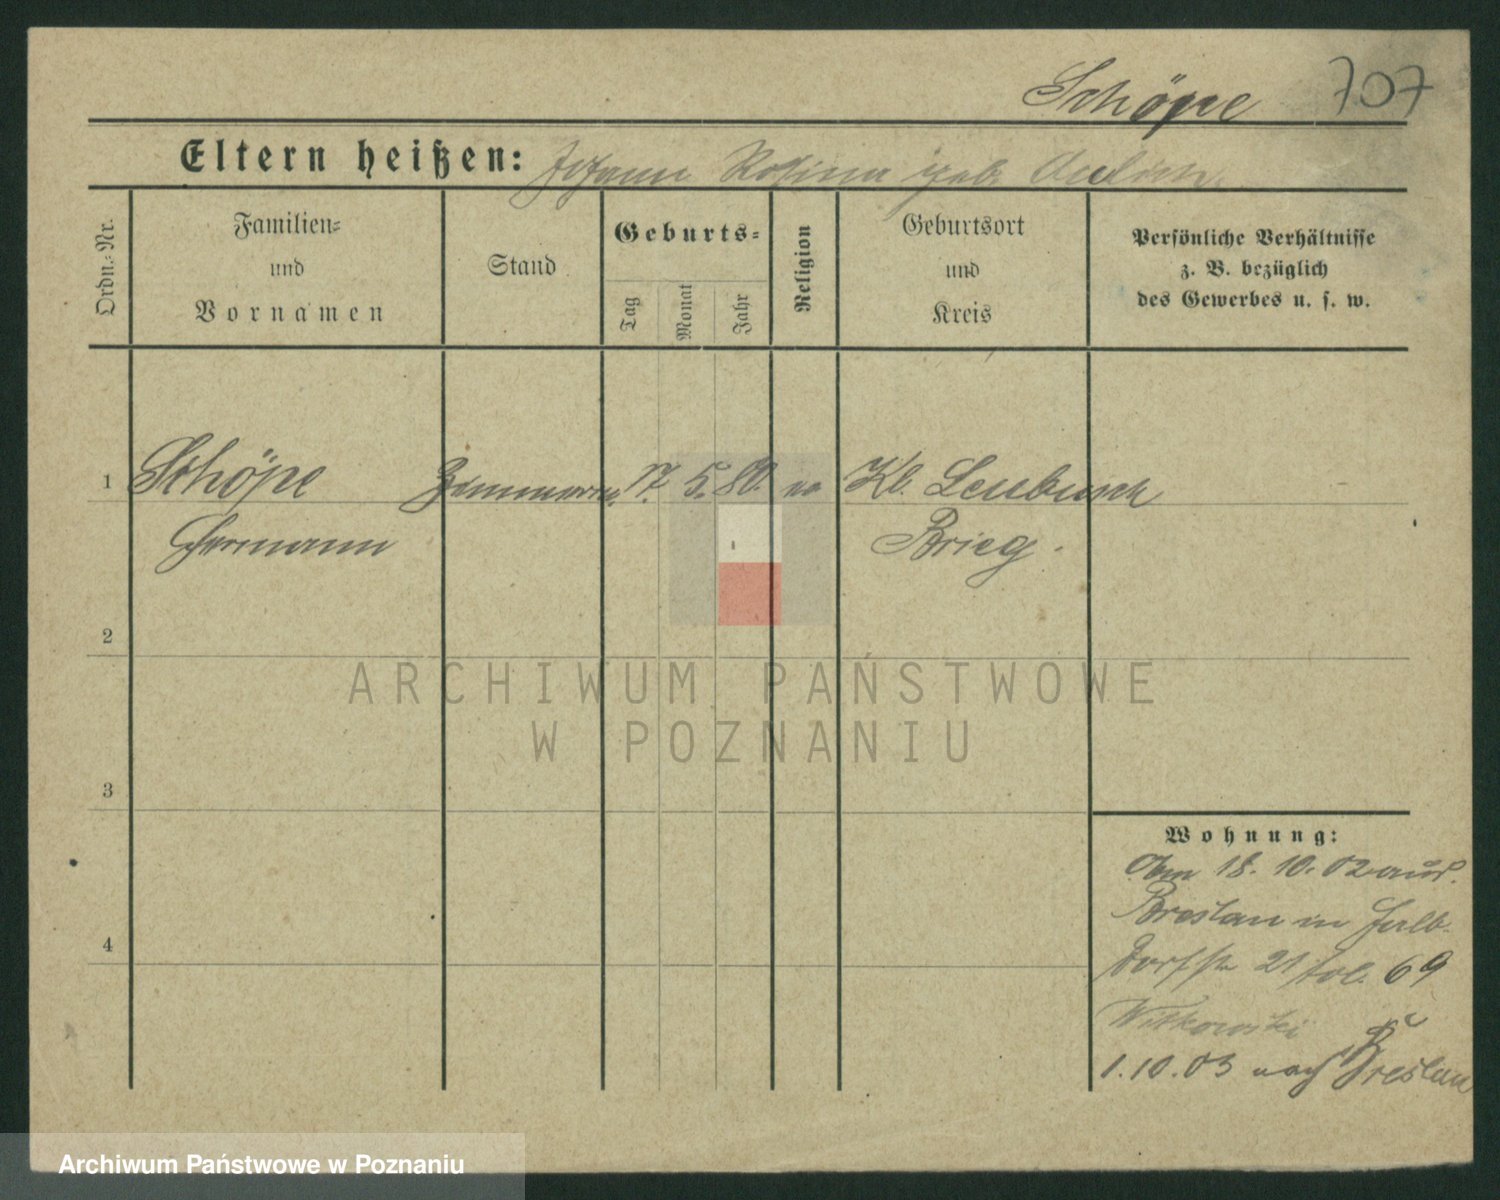 Schöpe 707
Eltern heißen: Johann Rosina geb.
Ordn.-Nr.
Familien-
und
Vornamen
Stand
Geburts-
Tag
Monat
Jahr
Religion
Geburtsort
und
Kreis
Persönliche Verhältnisse
z. B. bezüglich
des Gewerbes u. s. w.
1 Schöpe Zimmerm. 17. 5. 80. ev Kl. Leubusch
Hermann Brieg.
2
3
4
Wohnung:
18. 10. 02 aus
Breslau in Halb-
dorfstr 21 fol. 69
Witkowski
1. 10. 03 nach Breslau
ARCHIWUM PAŃSTWOWE
W POZNANIU
Archiwum Państwowe w Poznaniu